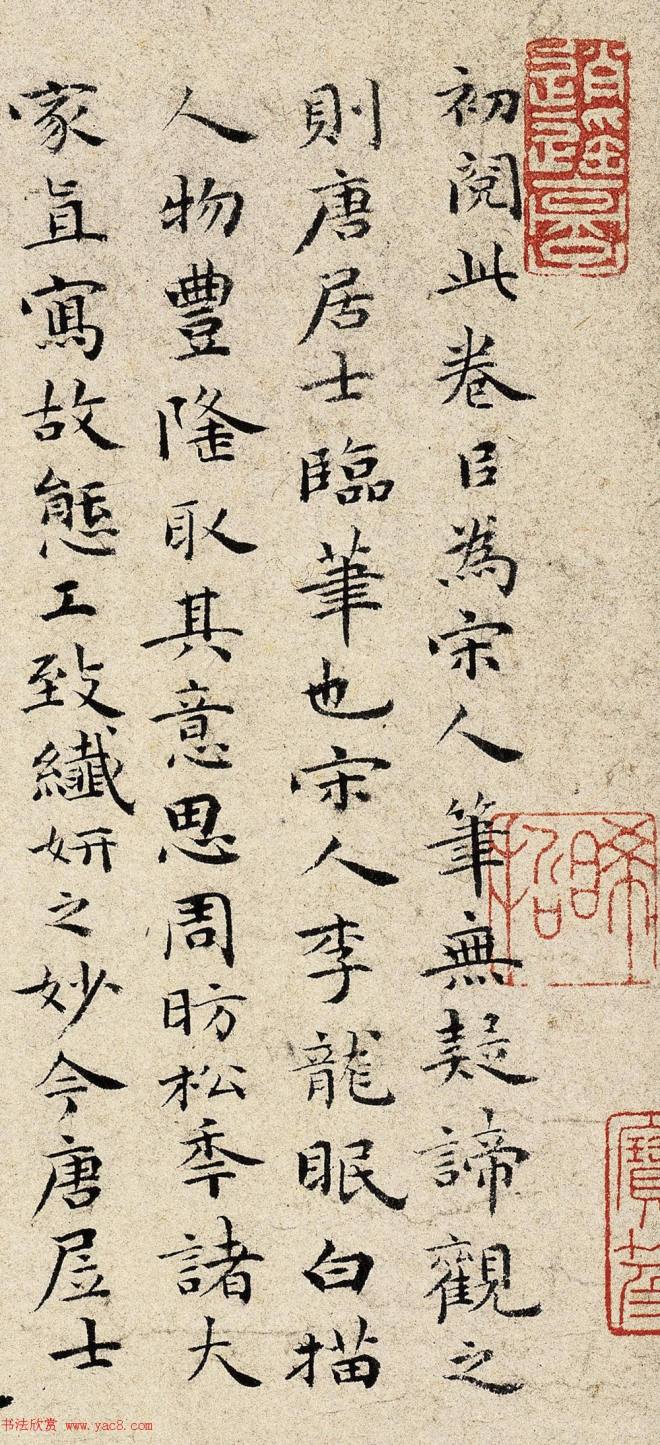 初閱此卷㠯為宋人筆無疑諦觀之
則唐居士臨筆也宋人李龍眠白描
人物豐隆取其意思周昉松年諸大
家直寫故態工致纖妍之妙今唐居士
书法欣赏 www.yac8.com